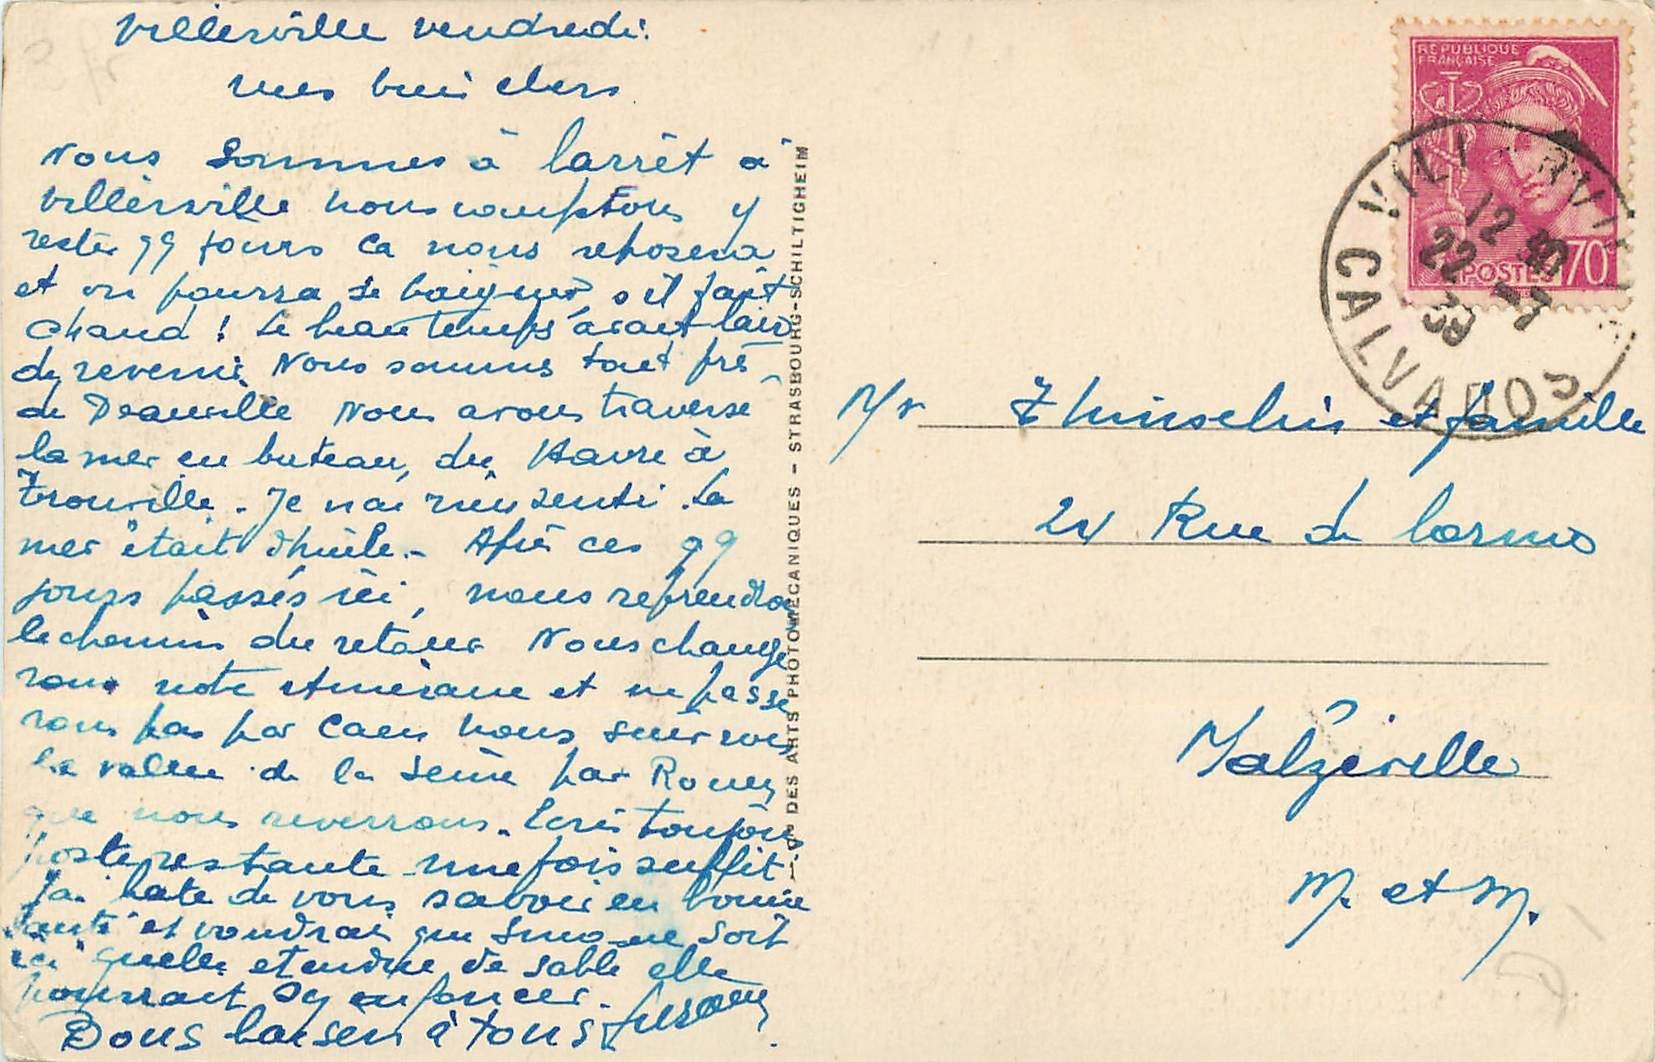 Villerville vendredi.
mes bien chers
Nous sommes à larrêt a
Villerville nous comptons y
rester 99 jours Ca nous reposera
et on pourra se baigner s il fait
chaud ! Le beau temps avant lair
de revenir Nous sommes tout près
de Deauville Nous avons traverse
la mer en bateau, du Havre à
Trouville. Je nai rien senti. La
mer était d'huile. - Après ces 99
jours passés ici, nous reprendrons
le chemin du retour Nous change
rons note itinéraire et ne passe
rons pas par Caen Nous suivrons
la vallée de la Seine par Rouen
que nous reverrons. Ecris toujours
poste restante une fois suffit
Jai hate de vous savoir en bonne
santé et voudrais que Simone soit
ici quelle etendue de sable elle
pourrait sy enfoncer.
Bons baisers à tous
DES ARTS PHOTOMÉCANIQUES - STRASBOURG-SCHILTIGHEIM
REPUBLIQUE
FRANÇAISE
POSTES 70
VILLERVILLE
12 30
22 -7
39
CALVADOS
Mr et famille
24 Rue de
Malzéville
M. et M.